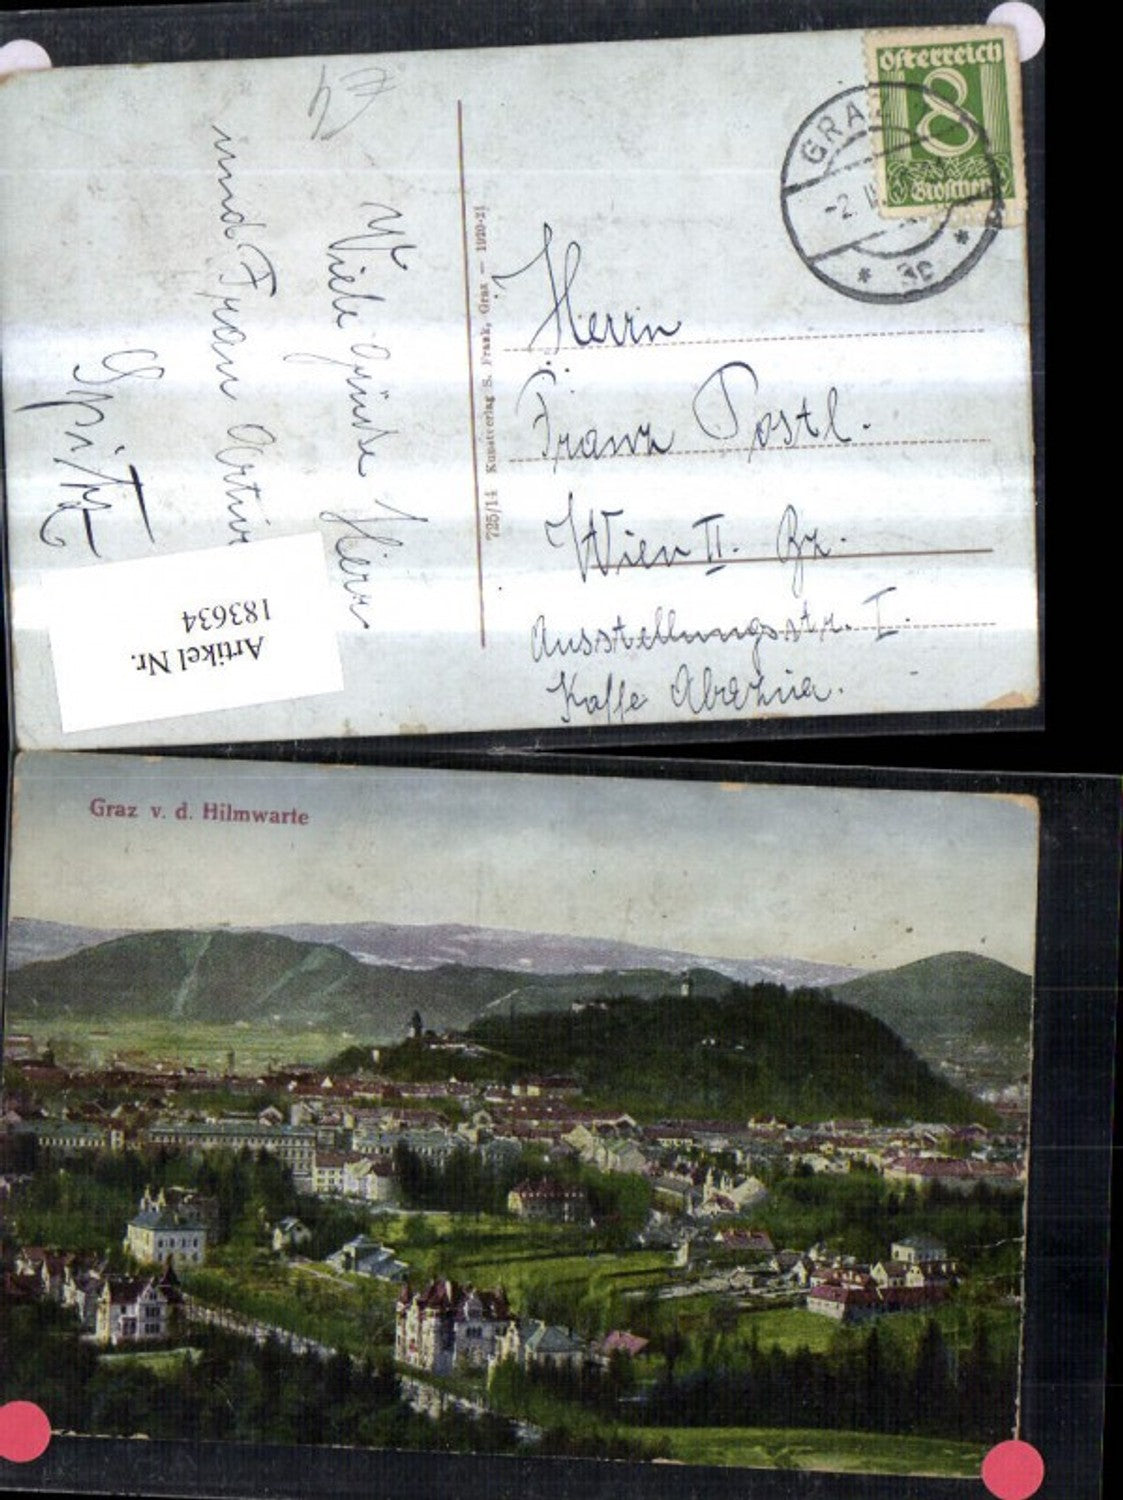 Österreich
8
Groschen
GRAZ
-2. II
* 3c *
Viele Grüße Herr
und Frau Artur
Spitze
725/14 Kunstverlag S. Frank, Graz — 1920-21
Herrn
Franz Postl.
Wien II. Bz.
Ausstellungsstr. I.
Kaffe Abazzia.
Artikel Nr.
183634
Graz v. d. Hilmwarte